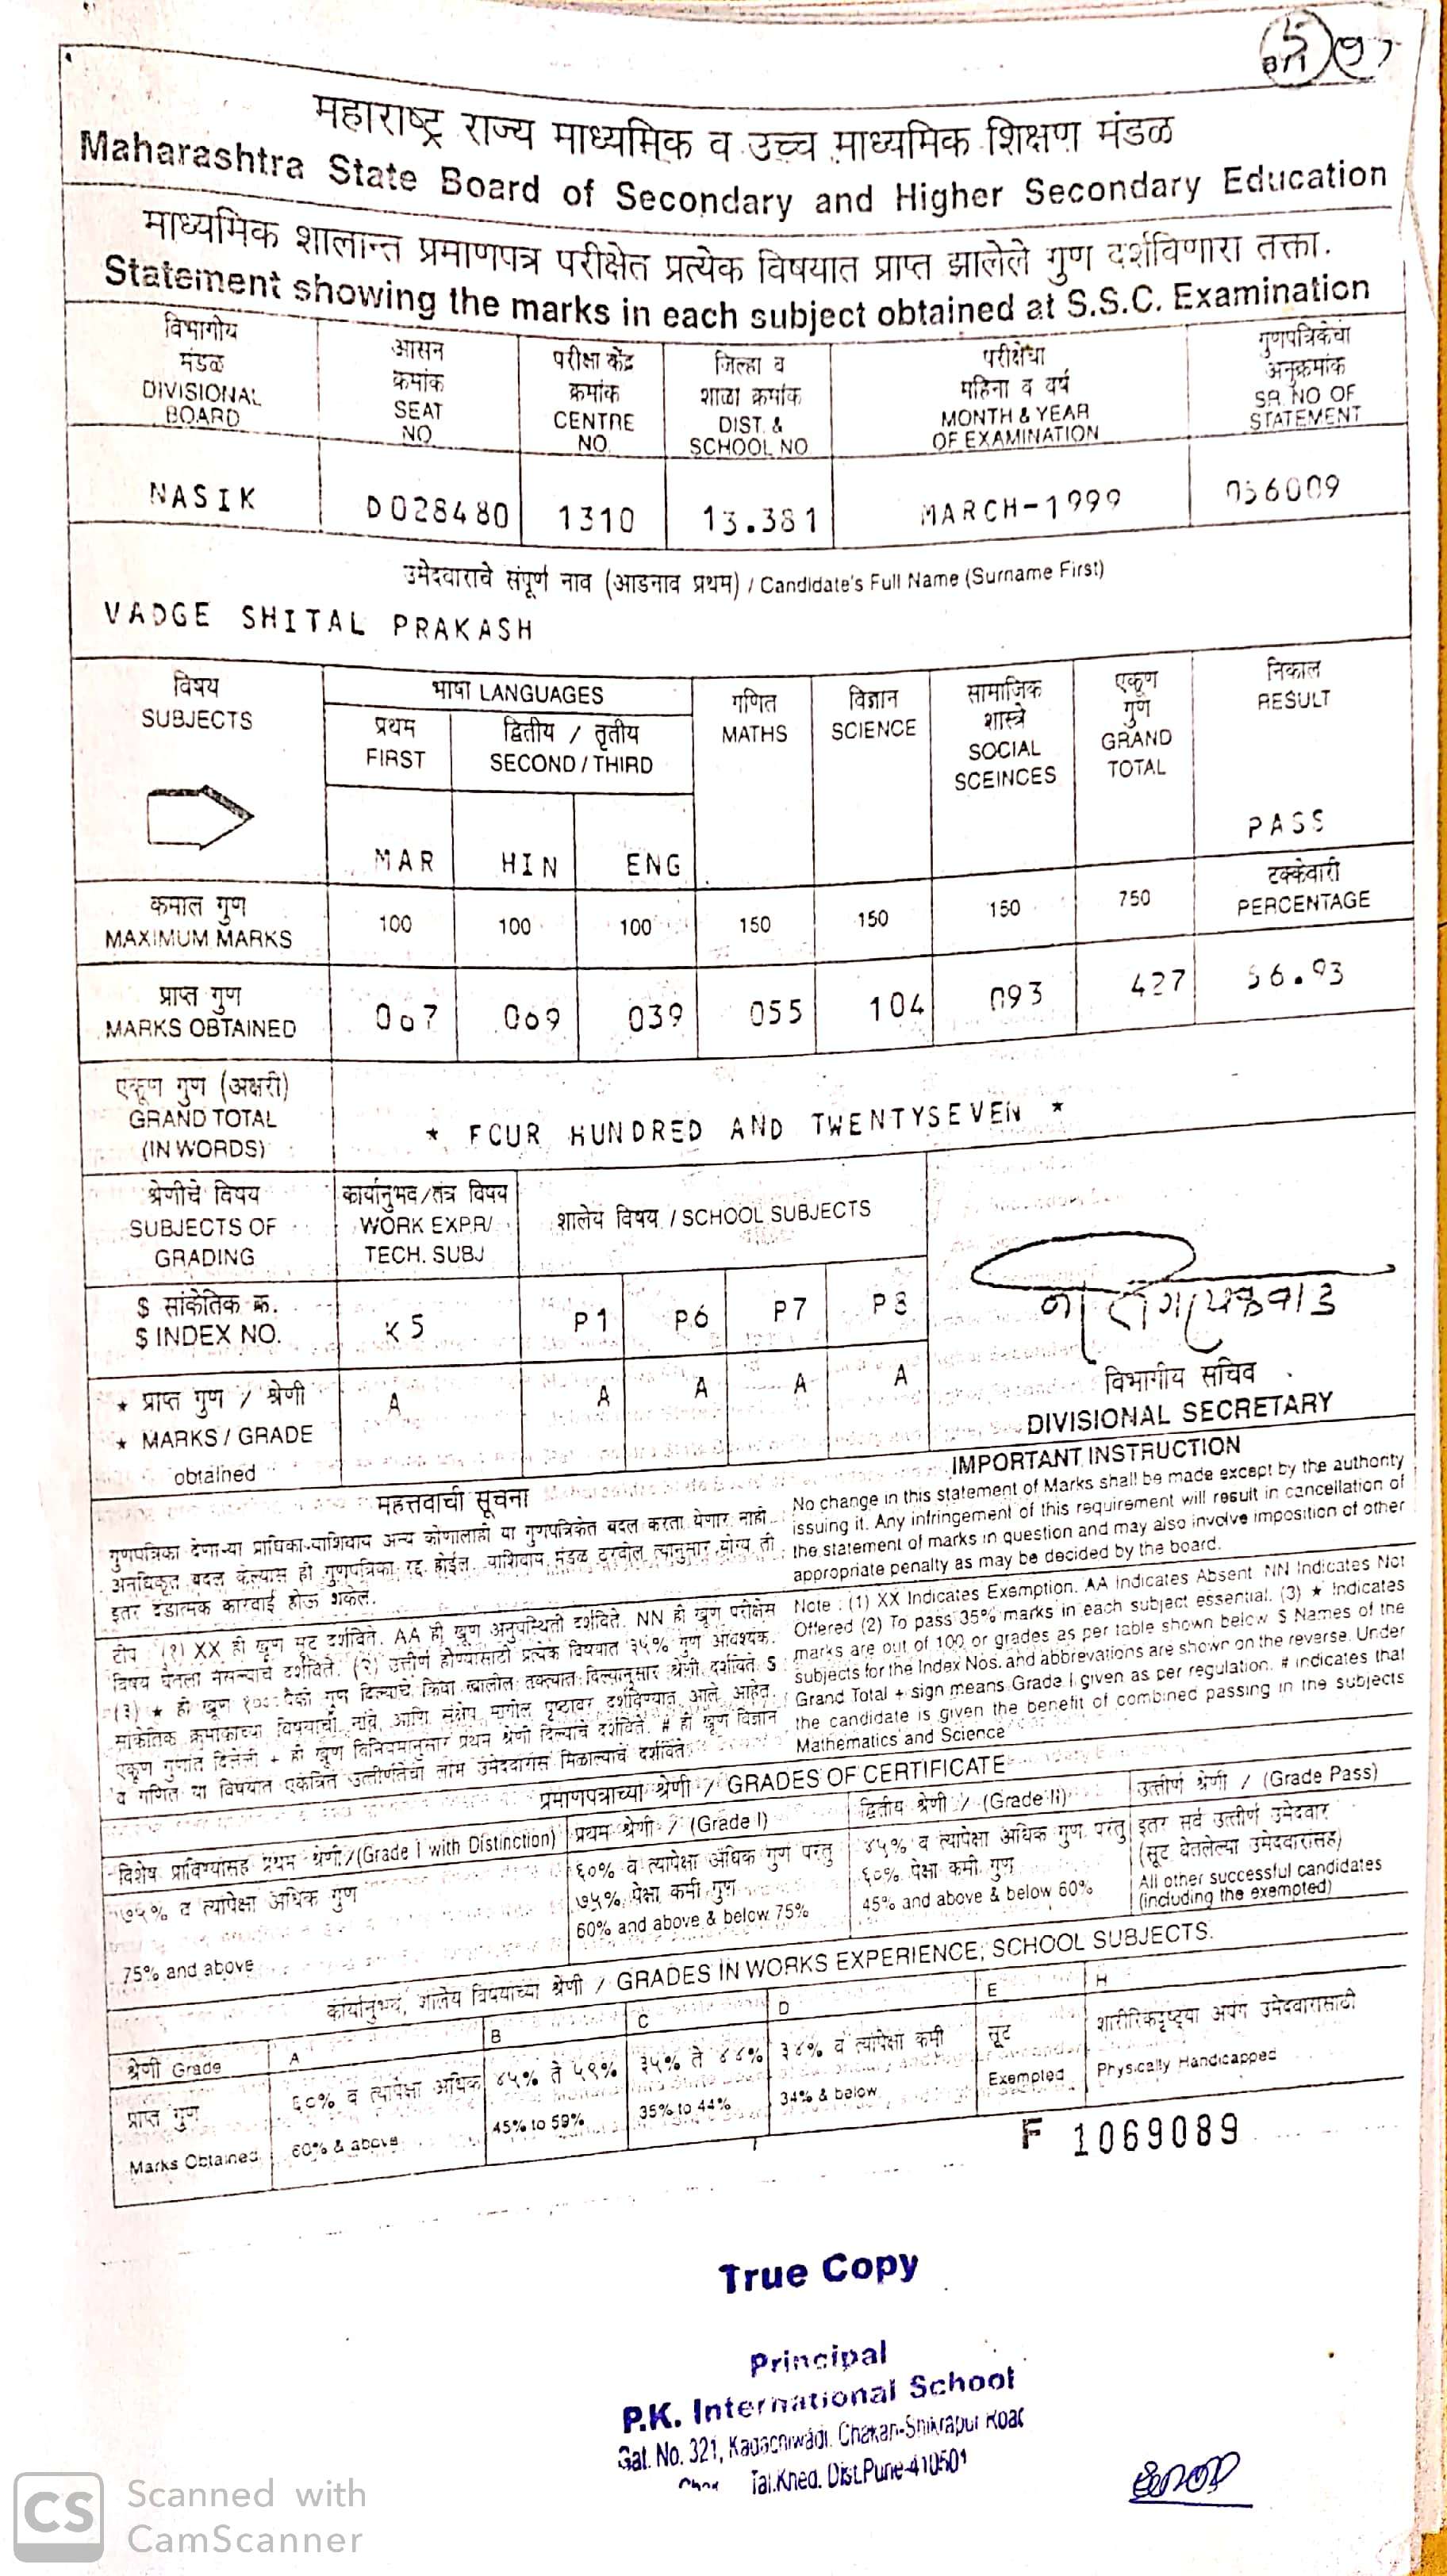 महाराष्ट्र राज्य माध्यमिक व उच्च माध्यमिक शिक्षण मंडळ
Maharashtra State Board of Secondary and Higher Secondary Education
माध्यमिक शालान्त प्रमाणपत्र परीक्षेत प्रत्येक विषयात प्राप्त झालेले गुण दर्शविणारा तक्ता.
Statement showing the marks in each subject obtained at S.S.C. Examination
विभागीय मंडळ DIVISIONAL BOARD
आसन क्रमांक SEAT NO.
परीक्षा केंद्र क्रमांक CENTRE NO.
जिल्हा व शाळा क्रमांक DIST. & SCHOOL NO
परीक्षेचा महिना व वर्ष MONTH & YEAR OF EXAMINATION
गुणपत्रिकेचा अनुक्रमांक SR. NO OF STATEMENT
NASIK D028480 1310 13.381 MARCH-1999 056009
उमेदवाराचे संपूर्ण नाव (आडनाव प्रथम) / Candidate's Full Name (Surname First)
VADGE SHITAL PRAKASH
विषय SUBJECTS
भाषा LANGUAGES
प्रथम FIRST
द्वितीय / तृतीय SECOND / THIRD
गणित MATHS
विज्ञान SCIENCE
सामाजिक शास्त्रे SOCIAL SCEINCES
एकूण गुण GRAND TOTAL
निकाल RESULT
MAR HIN ENG PASS
कमाल गुण MAXIMUM MARKS 100 100 100 150 150 150 750
टक्केवारी PERCENTAGE
प्राप्त गुण MARKS OBTAINED 067 069 039 055 104 093 427 56.93
एकूण गुण (अक्षरी) GRAND TOTAL (IN WORDS)
* FOUR HUNDRED AND TWENTYSEVEN *
श्रेणीचे विषय SUBJECTS OF GRADING
कार्यानुभव/तंत्र विषय WORK EXPR/ TECH. SUBJ
शालेय विषय / SCHOOL SUBJECTS
$ सांकेतिक क्र. $ INDEX NO. K5 P1 P6 P7 P8
* प्राप्त गुण / श्रेणी * MARKS / GRADE obtained A A A A A
विभागीय सचिव
DIVISIONAL SECRETARY
महत्तवाची सूचना
गुणपत्रिका देणाऱ्या प्राधिकाऱ्याशिवाय अन्य कोणालाही या गुणपत्रिकेत बदल करता येणार नाही.
अनधिकृत बदल केल्यास ही गुणपत्रिका रद्द होईल. याशिवाय मंडळ ठरवील त्यानुसार योग्य ती
इतर दंडात्मक कारवाई होऊ शकेल.
IMPORTANT INSTRUCTION
No change in this statement of Marks shall be made except by the authority
issuing it. Any infringement of this requirement will result in cancellation of
the statement of marks in question and may also involve imposition of other
appropriate penalty as may be decided by the board.
टीप : (१) XX ही खूण सूट दर्शविते. AA ही खूण अनुपस्थिती दर्शविते. NN ही खूण परीक्षेस
विषय घेतला नसल्याचे दर्शविते. (२) उत्तीर्ण होण्यासाठी प्रत्येक विषयात ३५% गुण आवश्यक.
Note : (1) XX Indicates Exemption. AA Indicates Absent NN Indicates Not
Offered (2) To pass 35% marks in each subject essential. (3) * Indicates
marks are out of 100 or grades as per table shown below $ Names of the
subjects for the Index Nos. and abbrevations are shown on the reverse. Under
Grand Total + sign means Grade I given as per regulation. # indicates that
the candidate is given the benefit of combined passing in the subjects
Mathematics and Science
प्रमाणपत्राच्या श्रेणी / GRADES OF CERTIFICATE
विशेष प्राविण्यासह प्रथम श्रेणी / (Grade I with Distinction)
७५% व त्यापेक्षा अधिक गुण
75% and above
प्रथम श्रेणी / (Grade I)
६०% व त्यापेक्षा अधिक गुण परंतु
७५% पेक्षा कमी गुण
60% and above & below 75%
द्वितीय श्रेणी / (Grade II)
४५% व त्यापेक्षा अधिक गुण परंतु
६०% पेक्षा कमी गुण
45% and above & below 60%
उत्तीर्ण श्रेणी / (Grade Pass)
इतर सर्व उत्तीर्ण उमेदवार
(सूट घेतलेल्या उमेदवारांसह)
All other successful candidates
(including the exempted)
कार्यानुभव, शालेय विषयांच्या श्रेणी / GRADES IN WORKS EXPERIENCE, SCHOOL SUBJECTS.
श्रेणी Grade A B C D E H
प्राप्त गुण ६०% व त्यापेक्षा अधिक ४५% ते ५९% ३५% ते ४४% ३४% व त्यापेक्षा कमी सूट शारीरिकदृष्ट्या अपंग उमेदवारासाठी
Marks Obtained 60% & above 45% to 59% 35% to 44% 34% & below Exempted Physically Handicapped
F 1069089
True Copy
Principal
P.K. International School
Gat. No. 321, Kadachiwadi, Chakan-Shikrapur Road
Tal.Khed. Dist.Pune-410501
CS Scanned with
CamScanner